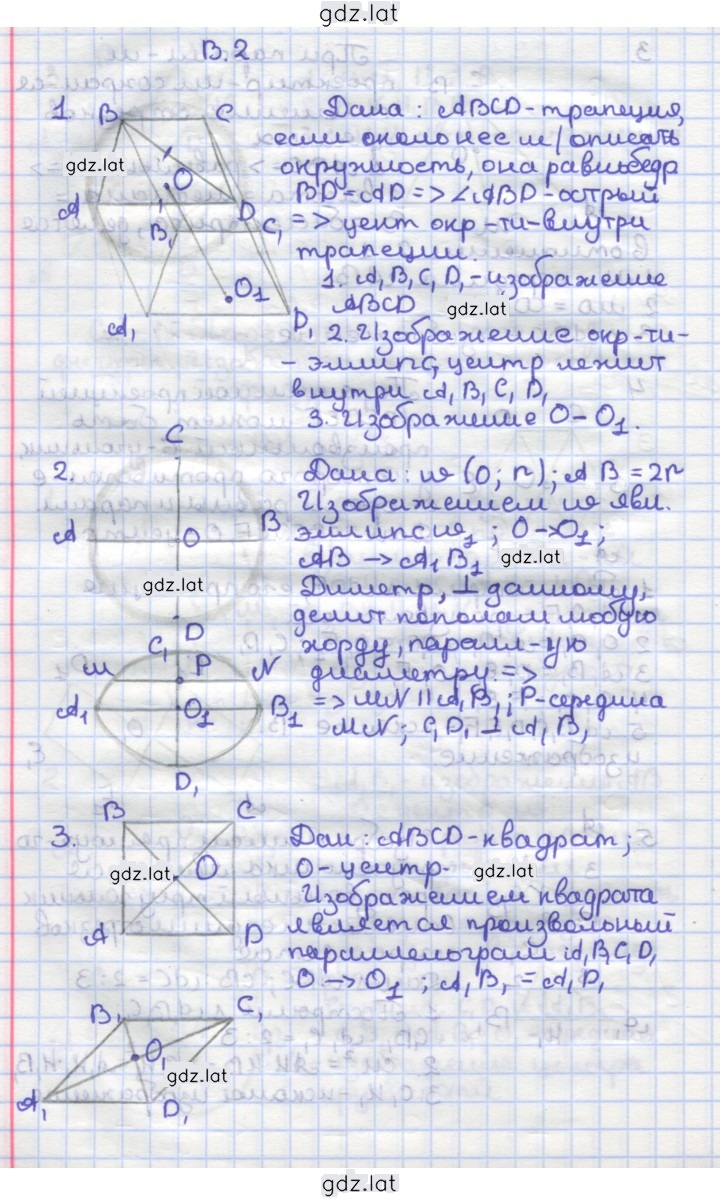 gdz.lat
В.2
1.
Дана: ABCD-трапеция,
если около нее м/описать
окружность, она равнобедр
BD=AD => ∠ABD-острый
=> цент окр-ти-внутри
трапеции.
1. A₁B₁C₁D₁-изображение
ABCD
2. Изображение окр-ти-
-эллипс, центр лежит
внутри A₁B₁C₁D₁
3. Изображение O-O₁.
B C
gdz.lat
O
A D
B₁ C₁
O₁
gdz.lat
A₁ D₁
2.
Дана: w (O; r); AB=2r
Изображением w явл.
эллипс w₁; O→O₁;
AB → A₁B₁
gdz.lat
Диметр, ⊥ данному,
делит пополам любую
хорду, паралл-ую
диаметру =>
=> MN || A₁B₁; P-середина
MN; C₁D₁ ⊥ A₁B₁
C
A O B
gdz.lat
D
C₁
M P N
A₁ O₁ B₁
D₁
3.
Дан: ABCD-квадрат;
O-центр.
gdz.lat
Изображением квадрата
является произвольный
параллелограм A₁B₁C₁D₁
O → O₁; A₁B₁ = A₁D₁
B C
gdz.lat O
A D
B₁ C₁
O₁
gdz.lat
A₁ D₁
gdz.lat